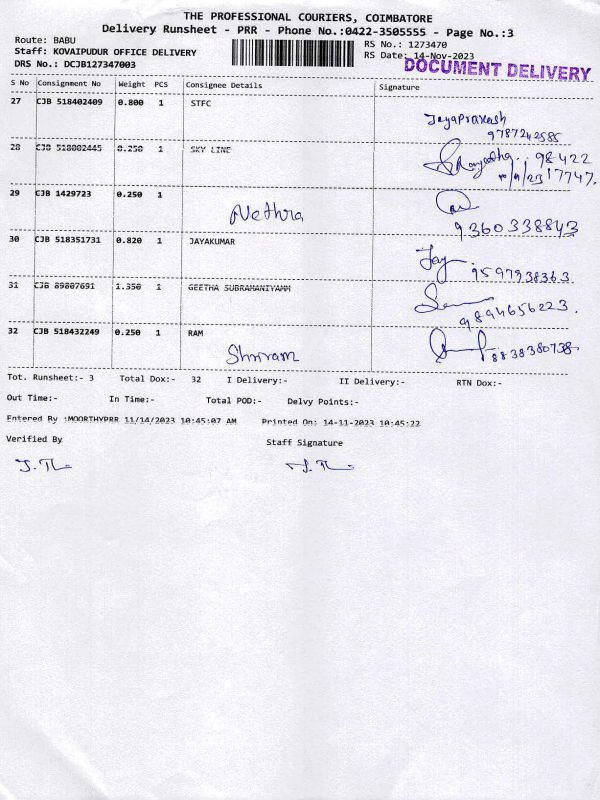 THE PROFESSIONAL COURIERS, COIMBATORE
Delivery Runsheet - PRR - Phone No.:0422-3505555 - Page No.:3
Route: BABU
Staff: KOVAIPUDUR OFFICE DELIVERY
DRS No.: DCJB127347003
RS No.: 1273470
RS Date: 14-Nov-2023
DOCUMENT DELIVERY
S No Consignment No Weight PCS Consignee Details Signature
27 CJB 518402409 0.800 1 STFC
Jayaprakash
9787242585
28 CJB 518002445 0.250 1 SKY LINE
98422
17747.
29 CJB 1429723 0.250 1
Nethra
9360338843
30 CJB 518351731 0.820 1 JAYAKUMAR
Jay
9597938363
31 CJB 89807691 1.350 1 GEETHA SUBRAMANIYAMM
9894656223.
32 CJB 518432249 0.250 1 RAM
Shriram
8838380738
Tot. Runsheet:- 3 Total Dox:- 32 I Delivery:- II Delivery:- RTN Dox:-
Out Time:- In Time:- Total POD:- Delvy Points:-
Entered By :MOORTHYPRR 11/14/2023 10:45:07 AM Printed On: 14-11-2023 10:45:22
Verified By Staff Signature